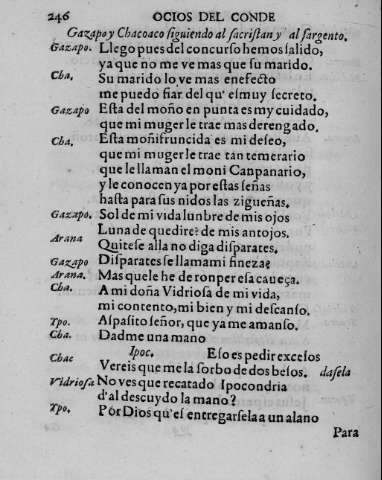 246 OCIOS DEL CONDE
Gazapo y Chacoaco siguiendo al sacristan y al sargento.
Gazapo. Llego pues del concurso hemos salido,
ya que no me ve mas que su marido.
Cha. Su marido lo, ve mas enefecto
me puedo fiar del qu' es muy secreto.
Gazapo Esta del moño en punta es my cuidado,
que mi muger le trae mas derengado.
Cha. Esta moñifruncida es mi deseo,
que mi muger le trae tan temerario
que le llaman el moni Canpanario,
y le conocen ya por estas señas
hasta para sus nidos las zigueñas.
Gazapo. Sol de mi vida lunbre de mis ojos
Luna de quedire? de mis antojos.
Arana Quitese alla no diga disparates.
Gazapo Disparates se llama mi fineza?
Arana. Mas que le he de ronper esa caveça.
Cha. A mi doña Vidriosa de mi vida,
mi contento, mi bien y mi descanso.
Ypo. Aspasito señor, que ya me amanso.
Cha. Dadme una mano
Ipoc. Eso es pedir excesos
Chac Vereis que me la sorbo de dos besos. dasela
Vidriosa No ves que recatado Ipocondria
d'al descuydo la mano?
Ypo. Pór Dios qu'es entregarsela a un alano
Para